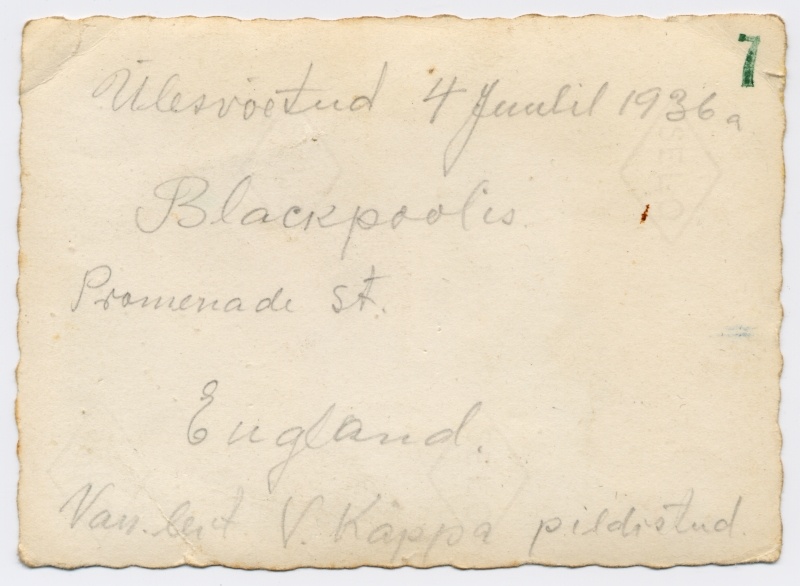 7
Ülesvõetud 4 Juulil 1936 a
Blackpoolis.
Promenade st.
England.
Van. leit. V. Käppa pildistud.